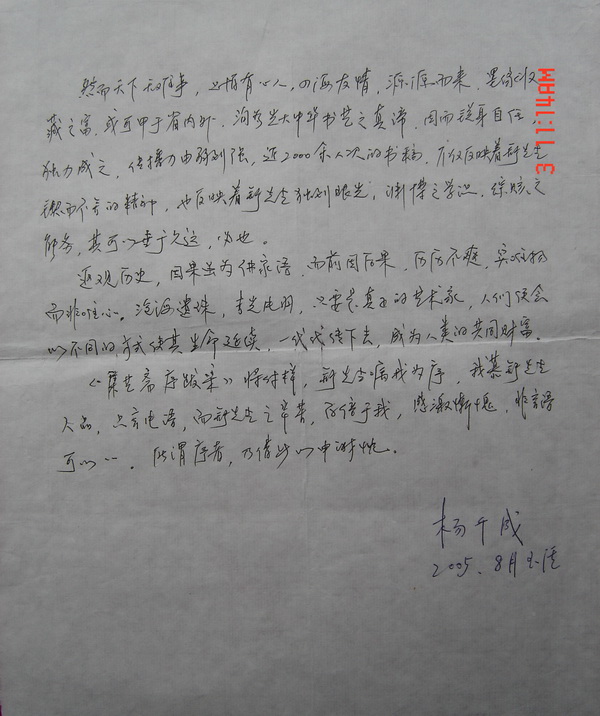 然而天下无难事，只怕有心人，四海友情，源源而来，墨缘收
藏之富，或可甲于省内外，洵为光大中华书艺之真谛，因而挺身自任，
独力成之，传播力由弱到强，近2000余人次的书稿，不仅反映着靳先生
锲而不舍的精神，也反映着靳先生独到眼光，渊博之学识，综赅之
能务，其可以垂于久远，必也。
返观历史，因果虽为佛家语，而前因后果，历历不爽，实唯物
而非唯心。沧海遗珠，幸光使明，只要是真正的艺术家，人们便会
以不同的方式使其生命延续，一代代传下去，成为人类的共同财富。
《集艺斋序跋集》将付梓，靳先生嘱我为序，我慕靳先生
人品，只言电语，而靳先生之牢苦，百倍于我，感激惭愧，非言语
可以一一，所谓序者，乃借此以申谢忱。
杨千成
2005.8月
3 11:14AM